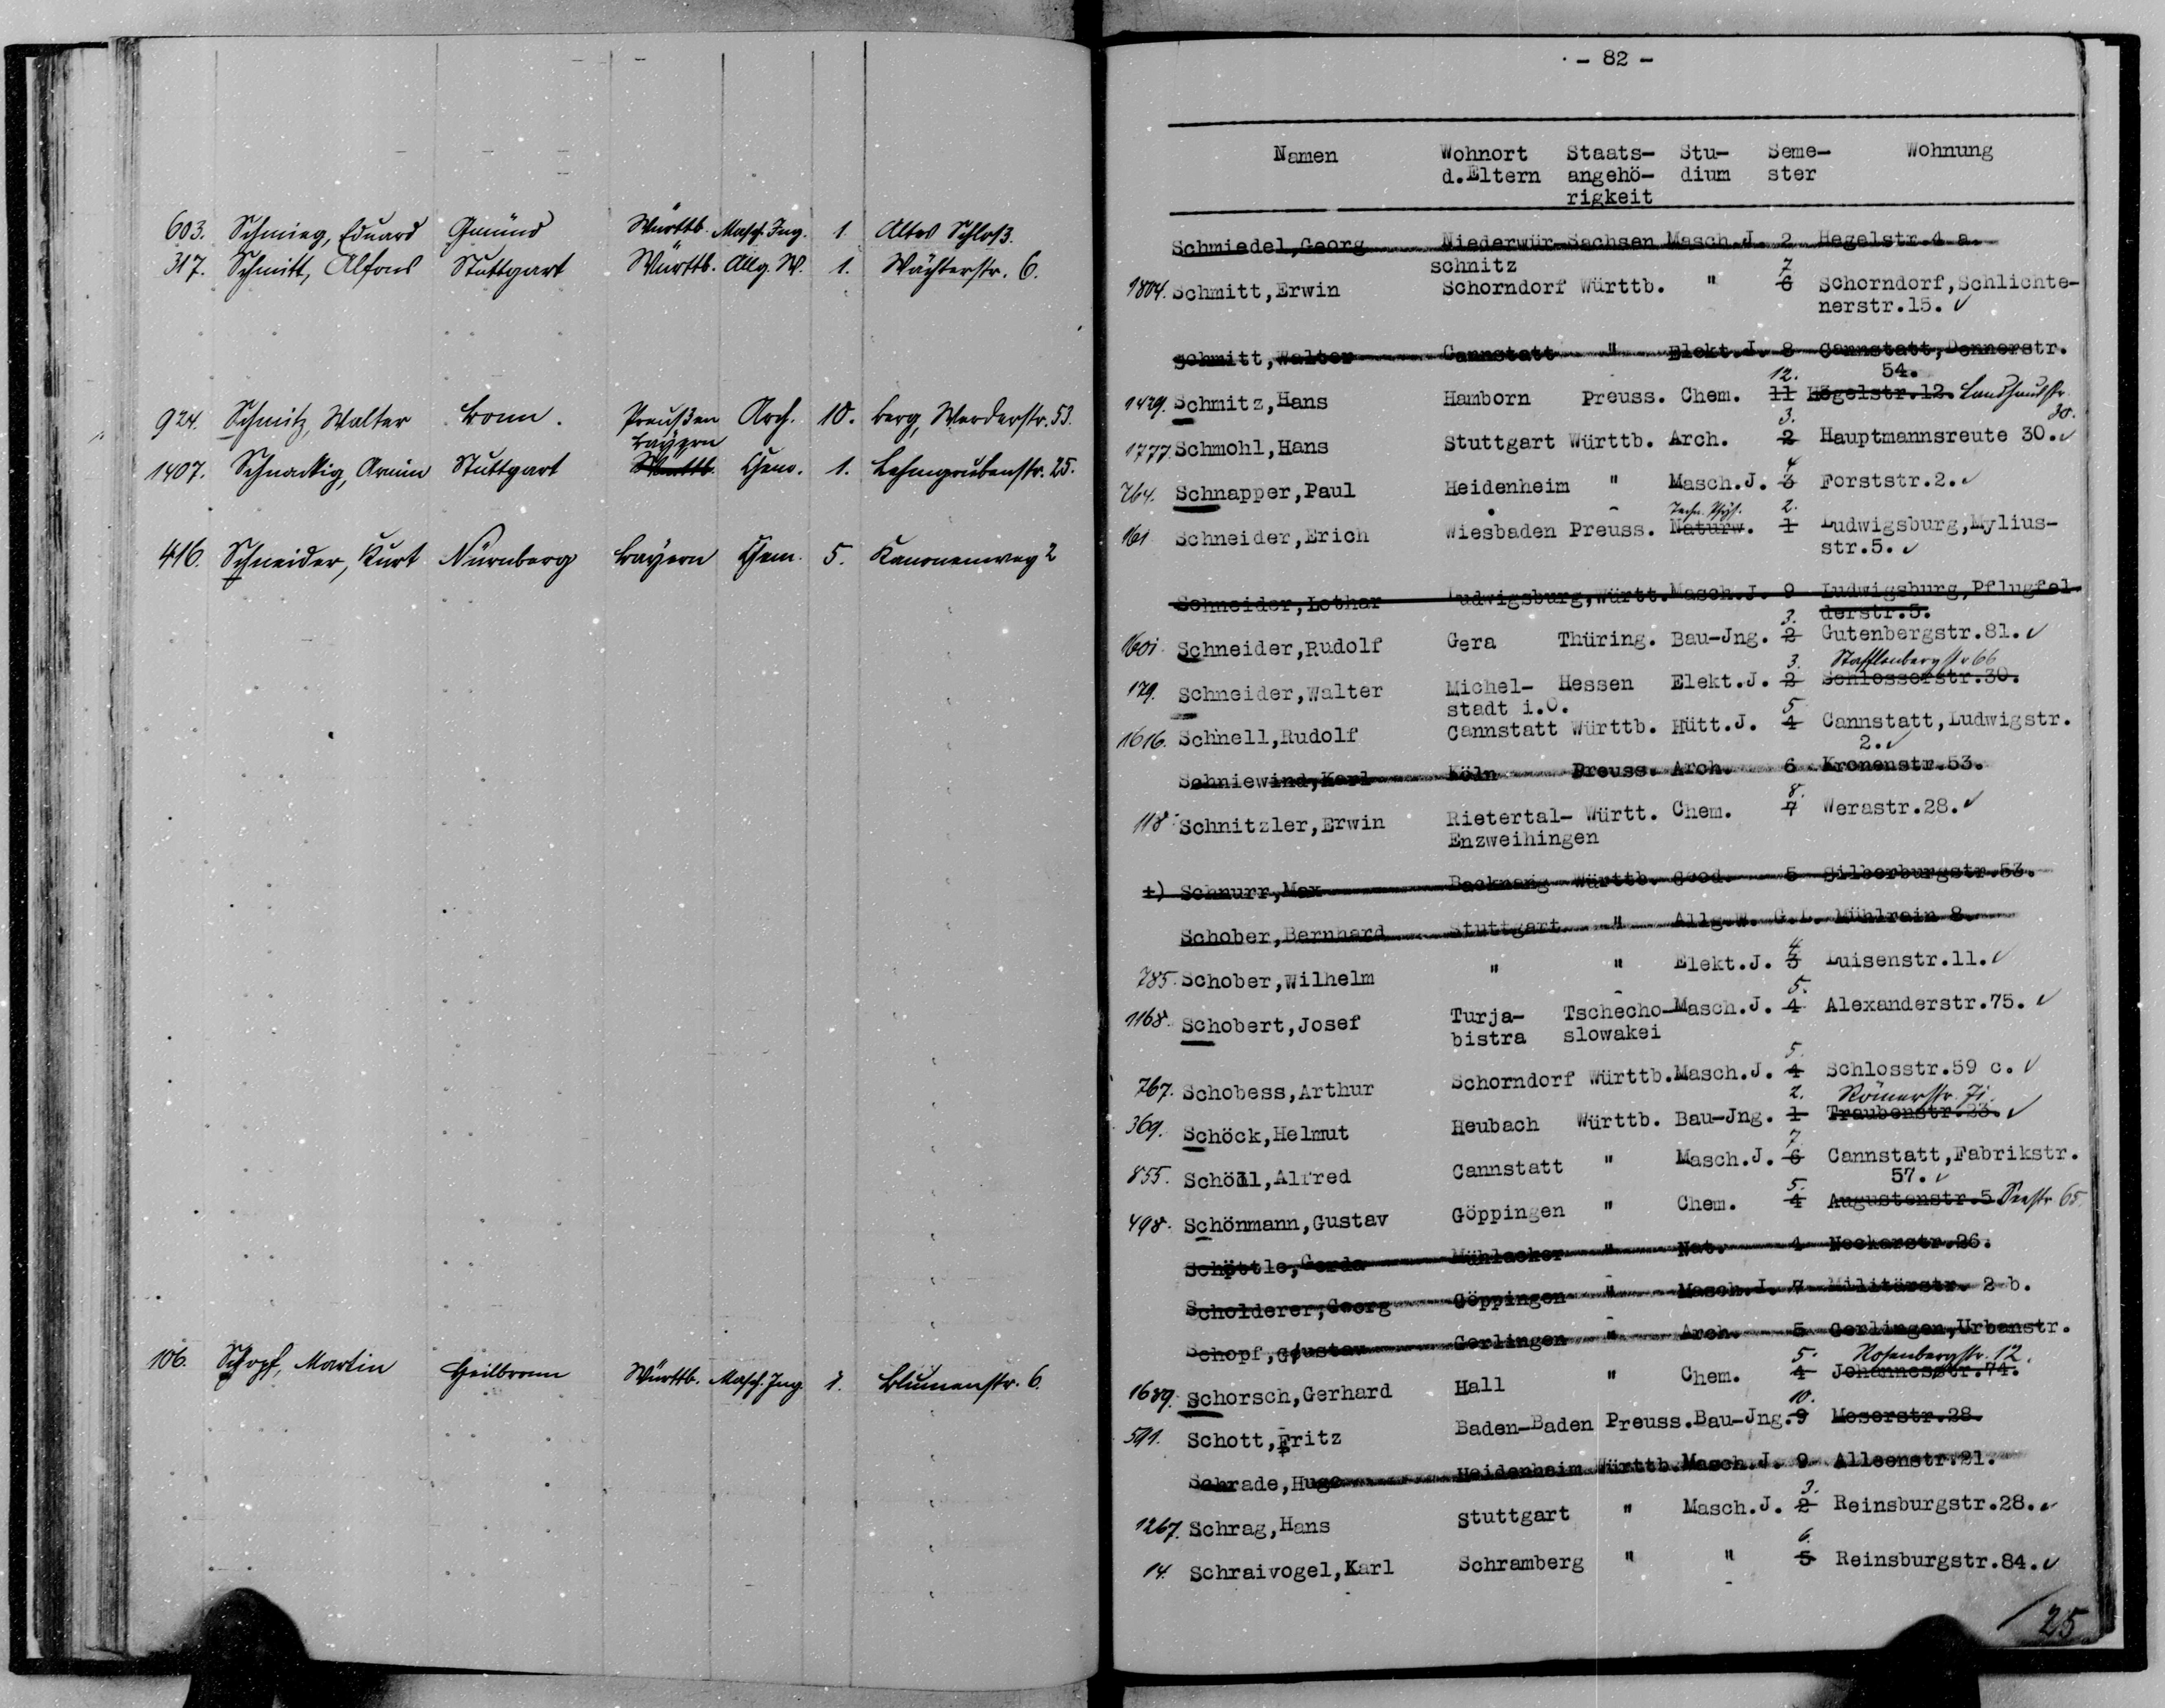 603. Schmieg, Eduard Gmünd Württb. Masch. Ing. 1. Altes Schloß.
317. Schmitt, Alfons Stuttgart Württb. Allg. W. 1. Wächterstr. 6.
924. Schmitz, Walter Bonn. Preußen Arch. 10. Berg, Werderstr. 53.
Bayern
1407. Schnackig, Armin Stuttgart Württb. Chem. 1. Lehmgrubenstr. 25.
416. Schneider, Kurt Nürnberg Bayern Chem. 5. Kanonenweg 2
106. Schopf, Martin Heilbronn Württb. Masch. Ing. 1. Blumenstr. 6.
- 82 -
Namen Wohnort Staats- Stu- Seme- Wohnung
d.Eltern angehö- dium ster
rigkeit
Schmiedel,Georg Niederwür-Sachsen Masch.J. 2 Hegelstr.4 a.
schnitz 7
1804. Schmitt,Erwin Schorndorf Württb. " 6 Schorndorf,Schlichte-
nerstr.15. ✓
Schmitt,Walter Cannstatt " Elekt.J. 8 Cannstatt,Dennerstr.
12. 54.
1429. Schmitz,Hans Hamborn Preuss. Chem. 11 Högelstr.12. Landhausstr.
3. 30.
1777. Schmohl,Hans Stuttgart Württb. Arch. 2 Hauptmannsreute 30. ✓
4
764. Schnapper,Paul Heidenheim " Masch.J. 3 Forststr.2. ✓
Techn. Phys. 2.
161 Schneider,Erich Wiesbaden Preuss. Naturw. 1 Ludwigsburg,Mylius-
str.5. ✓
Schneider,Lothar Ludwigsburg,Württ.Masch.J. 9 Ludwigsburg,Pflugfel-
3. derstr.5.
1601. Schneider,Rudolf Gera Thüring. Bau-Jng. 2 Gutenbergstr.81. ✓
3. Stafflenbergstr 66
179. Schneider,Walter Michel- Hessen Elekt.J. 2 Schlosserstr.30.
stadt i.O. 5
1616. Schnell,Rudolf Cannstatt Württb. Hütt.J. 4 Cannstatt,Ludwigstr.
2. ✓
Schniewind,Karl Köln Preuss. Arch. 6 Kronenstr.53.
8.
118. Schnitzler,Erwin Rietertal- Württ. Chem. 7 Werastr.28. ✓
Enzweihingen
+) Schnurr,Max Backnang Württb. Geod. 5 Silberburgstr.53.
Schober,Bernhard Stuttgart " Allg.W. G.L. Mühlrain 8.
4
785. Schober,Wilhelm " " Elekt.J. 3 Luisenstr.11. ✓
5.
1168. Schobert,Josef Turja- Tschecho-Masch.J. 4 Alexanderstr.75. ✓
bistra slowakei
5.
767. Schobess,Arthur Schorndorf Württb.Masch.J. 4 Schlosstr.59 c. ✓
2. Römerstr. 71.
369. Schöck,Helmut Heubach Württb. Bau-Jng. 1 Traubenstr.23. ✓
7.
855. Schöll,Alfred Cannstatt " Masch.J. 6 Cannstatt,Fabrikstr.
5. 57. ✓
498. Schönmann,Gustav Göppingen " Chem. 4 Augustenstr.5 Seestr 65.
Schöttle,Gerda Mühlacker " Nat. 4 Neckarstr.26.
Scholderer,Georg Göppingen " Masch.J. 7 Militärstr. 2 b.
Schopf,Gustav Gerlingen " Arch. 5 Gerlingen,Urbanstr.
5. Rosenbergstr. 12.
1689. Schorsch,Gerhard Hall " Chem. 4 Johannesstr.74.
10.
591. Schott,Fritz Baden-Baden Preuss.Bau-Jng.9 Moserstr.28.
Schrade,Hugo Heidenheim Württb.Masch.J. 9 Alleenstr.21.
3.
1267. Schrag,Hans Stuttgart " Masch.J. 2 Reinsburgstr.28. ✓
6.
14. Schraivogel,Karl Schramberg " " 5 Reinsburgstr.84. ✓
/25